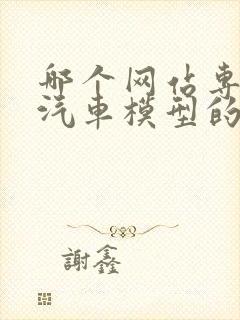 哪个网站专
汽车模型的
謝鑫